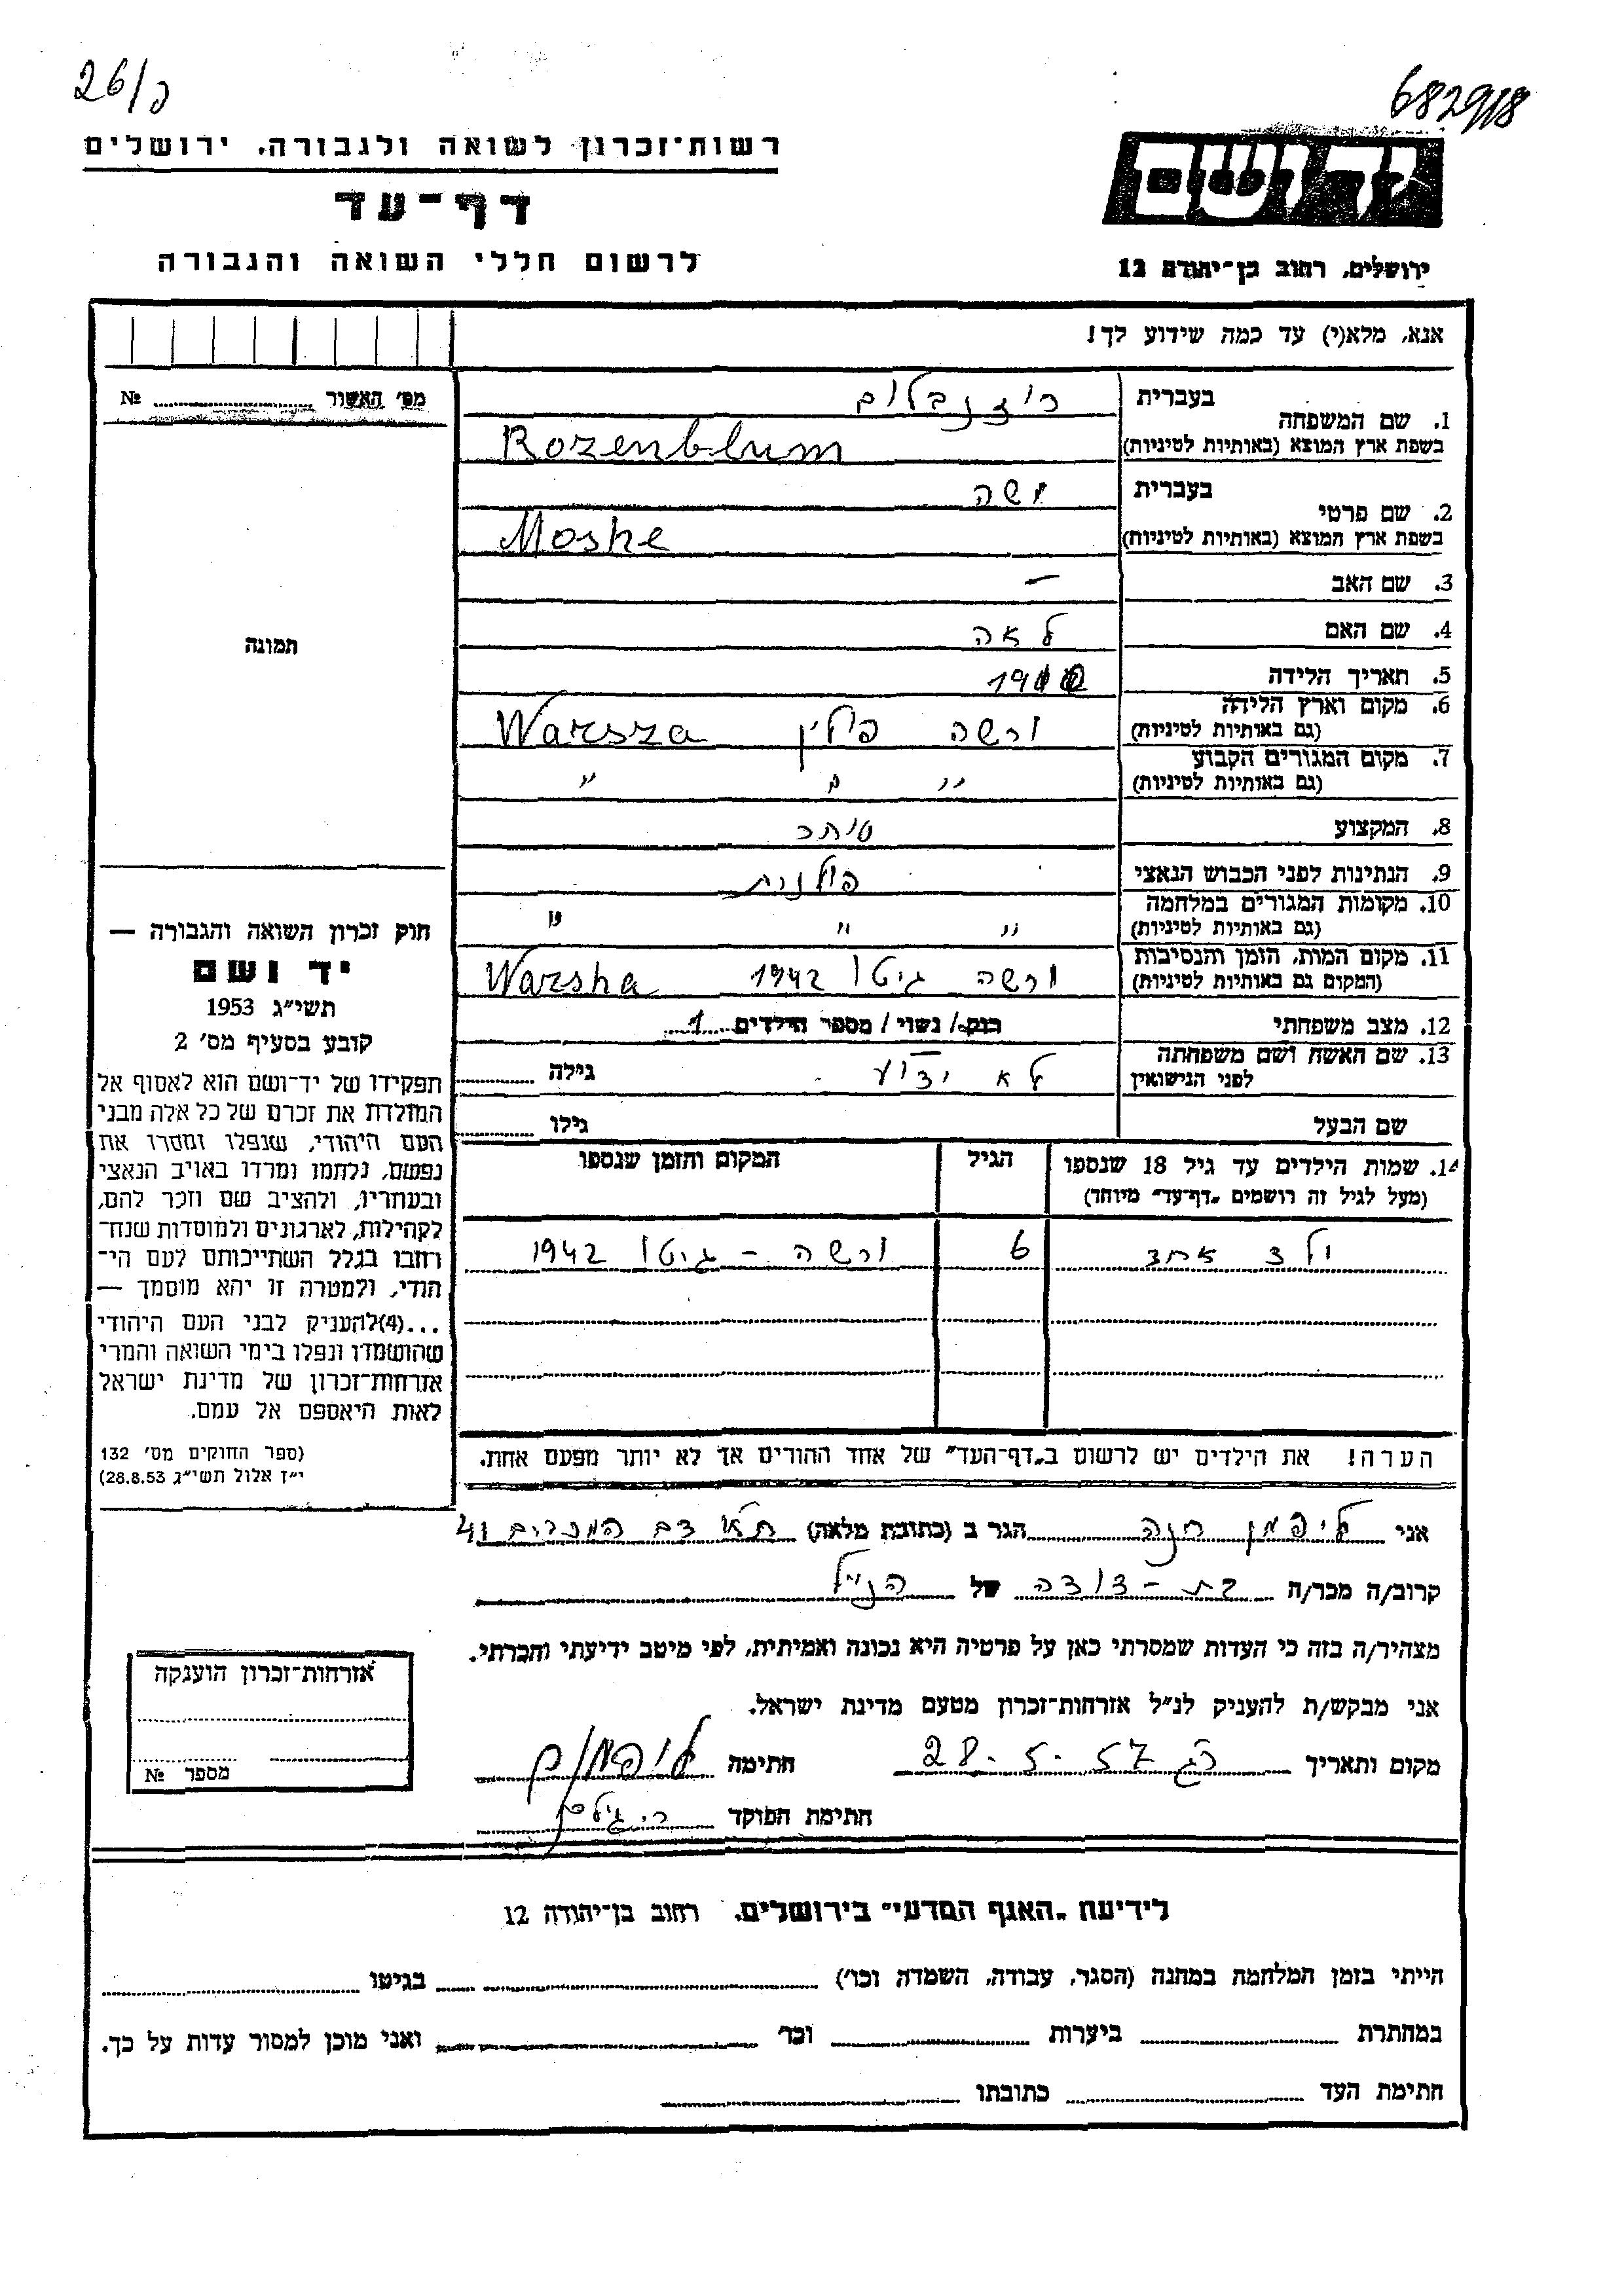 26/כ
682918
רשות־זכרון לשואה ולגבורה, ירושלים
דף־עד
לרשום חללי השואה והגבורה
יד ושם
ירושלים, רחוב בן־יהודה 12
אנא, מלא(י) עד כמה שידוע לך!
מס׳ האשור № ........
1. שם המשפחה בעברית רוזנבלום
בשפת ארץ המוצא (באותיות לטיניות) Rozenblum
2. שם פרטי בעברית משה
בשפת ארץ המוצא (באותיות לטיניות) Moshe
3. שם האב —
4. שם האם לאה
5. תאריך הלידה
6. מקום וארץ הלידה (גם באותיות לטיניות) ורשה פולין Warsza
7. מקום המגורים הקבוע (גם באותיות לטיניות) " " "
8. המקצוע סוחר
9. הנתינות לפני הכבוש הנאצי פולנית
10. מקומות המגורים במלחמה (גם באותיות לטיניות) " " "
11. מקום המות, הזמן והנסיבות (המקום גם באותיות לטיניות) ורשה גיטו 1942 Warsha
12. מצב משפחתי רווק/ נשוי/ מספר הילדים 1
13. שם האשה ושם משפחתה לפני הנישואין לא ידוע גילה ........
שם הבעל גילו ........
14. שמות הילדים עד גיל 18 שנספו
(מעל לגיל זה רושמים „דף־עד” מיוחד)
הגיל
המקום והזמן שנספו
ילד אחד 6 ורשה - גיטו 1942
הערה! את הילדים יש לרשום ב„דף־העד” של אחד ההורים אך לא יותר מפעם אחת.
תמונה
חוק זכרון השואה והגבורה —
יד ושם
תשי״ג 1953
קובע בסעיף מס׳ 2
תפקידו של יד־ושם הוא לאסוף אל
המולדת את זכרם של כל אלה מבני
העם היהודי, שנפלו ומסרו את
נפשם, נלחמו ומרדו באויב הנאצי
ובעוזריו, ולהציב שם וזכר להם,
לקהילות, לארגונים ולמוסדות שנח־
רבו בגלל השתייכותם לעם הי־
הודי, ולמטרה זו יהא מוסמך —
...(4) להעניק לבני העם היהודי
שהושמדו ונפלו בימי השואה והמרי
אזרחות־זכרון של מדינת ישראל
לאות היאספם אל עמם.
(ספר החוקים מס׳ 132
י״ז אלול תשי״ג 28.8.53)
אני ליפמן חנה הגר ב (כתובת מלאה) 41
קרוב/ה מכר/ה בת-דודה של הנ״ל
מצהיר/ה בזה כי העדות שמסרתי כאן על פרטיה היא נכונה ואמיתית, לפי מיטב ידיעתי והכרתי.
אני מבקש/ת להעניק לנ״ל אזרחות־זכרון מטעם מדינת ישראל.
מקום ותאריך רג 28.5.57 חתימה ליפמן
חתימת הפוקד
אזרחות־זכרון הוענקה
מספר №
לידיעת „האגף המדעי” בירושלים, רחוב בן־יהודה 12
הייתי בזמן המלחמה במחנה (הסגר, עבודה, השמדה וכו׳) ........ בגיטו ........
במחתרת ........ ביערות ........ וכו׳ ........ ואני מוכן למסור עדות על כך.
חתימת העד ........ כתובתו ........